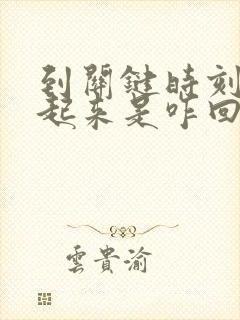 到關鍵時刻
起來是咋回
雲貴渝